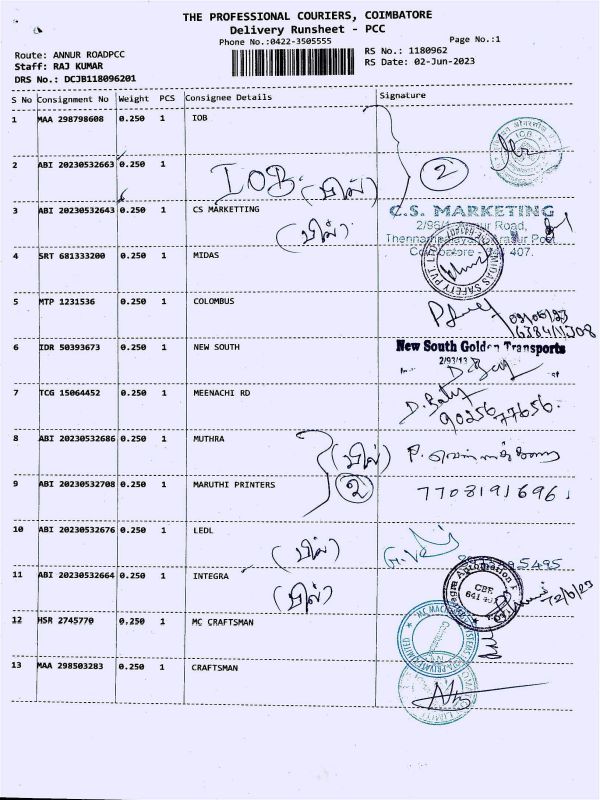 THE PROFESSIONAL COURIERS, COIMBATORE
Delivery Runsheet - PCC
Phone No.:0422-3505555
Page No.:1
Route: ANNUR ROADPCC
RS No.: 1180962
Staff: RAJ KUMAR
RS Date: 02-Jun-2023
DRS No.: DCJB118096201
S No Consignment No Weight PCS Consignee Details Signature
1 MAA 298798608 0.250 1 IOB
2 ABI 20230532663 0.250 1
IOB (பில்) 2
3 ABI 20230532643 0.250 1 CS MARKETTING
(பில்)
C.S. MARKETING
4 SRT 681333200 0.250 1 MIDAS
MIDAS SAFETY PVT LTD
5 MTP 1231536 0.250 1 COLOMBUS
6 IDR 50393673 0.250 1 NEW SOUTH
New South Golden Transports
2/93/13
7 TCG 15064452 0.250 1 MEENACHI RD
90256 77656.
8 ABI 20230532686 0.250 1 MUTHRA
(பில்)
9 ABI 20230532708 0.250 1 MARUTHI PRINTERS
2
7708191696
10 ABI 20230532676 0.250 1 LEDL
(பில்)
11 ABI 20230532664 0.250 1 INTEGRA
(பில்)
CBE
12 HSR 2745770 0.250 1 MC CRAFTSMAN
13 MAA 298503283 0.250 1 CRAFTSMAN